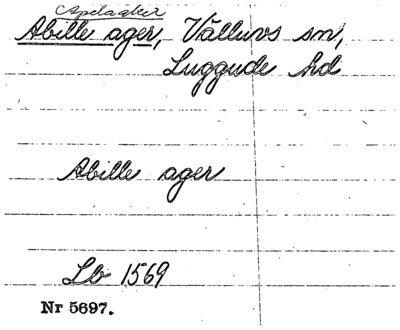 Apelager
Abille ager, Välluvs sn,
Luggude hd
Abille ager
Lb 1569
Nr 5697.